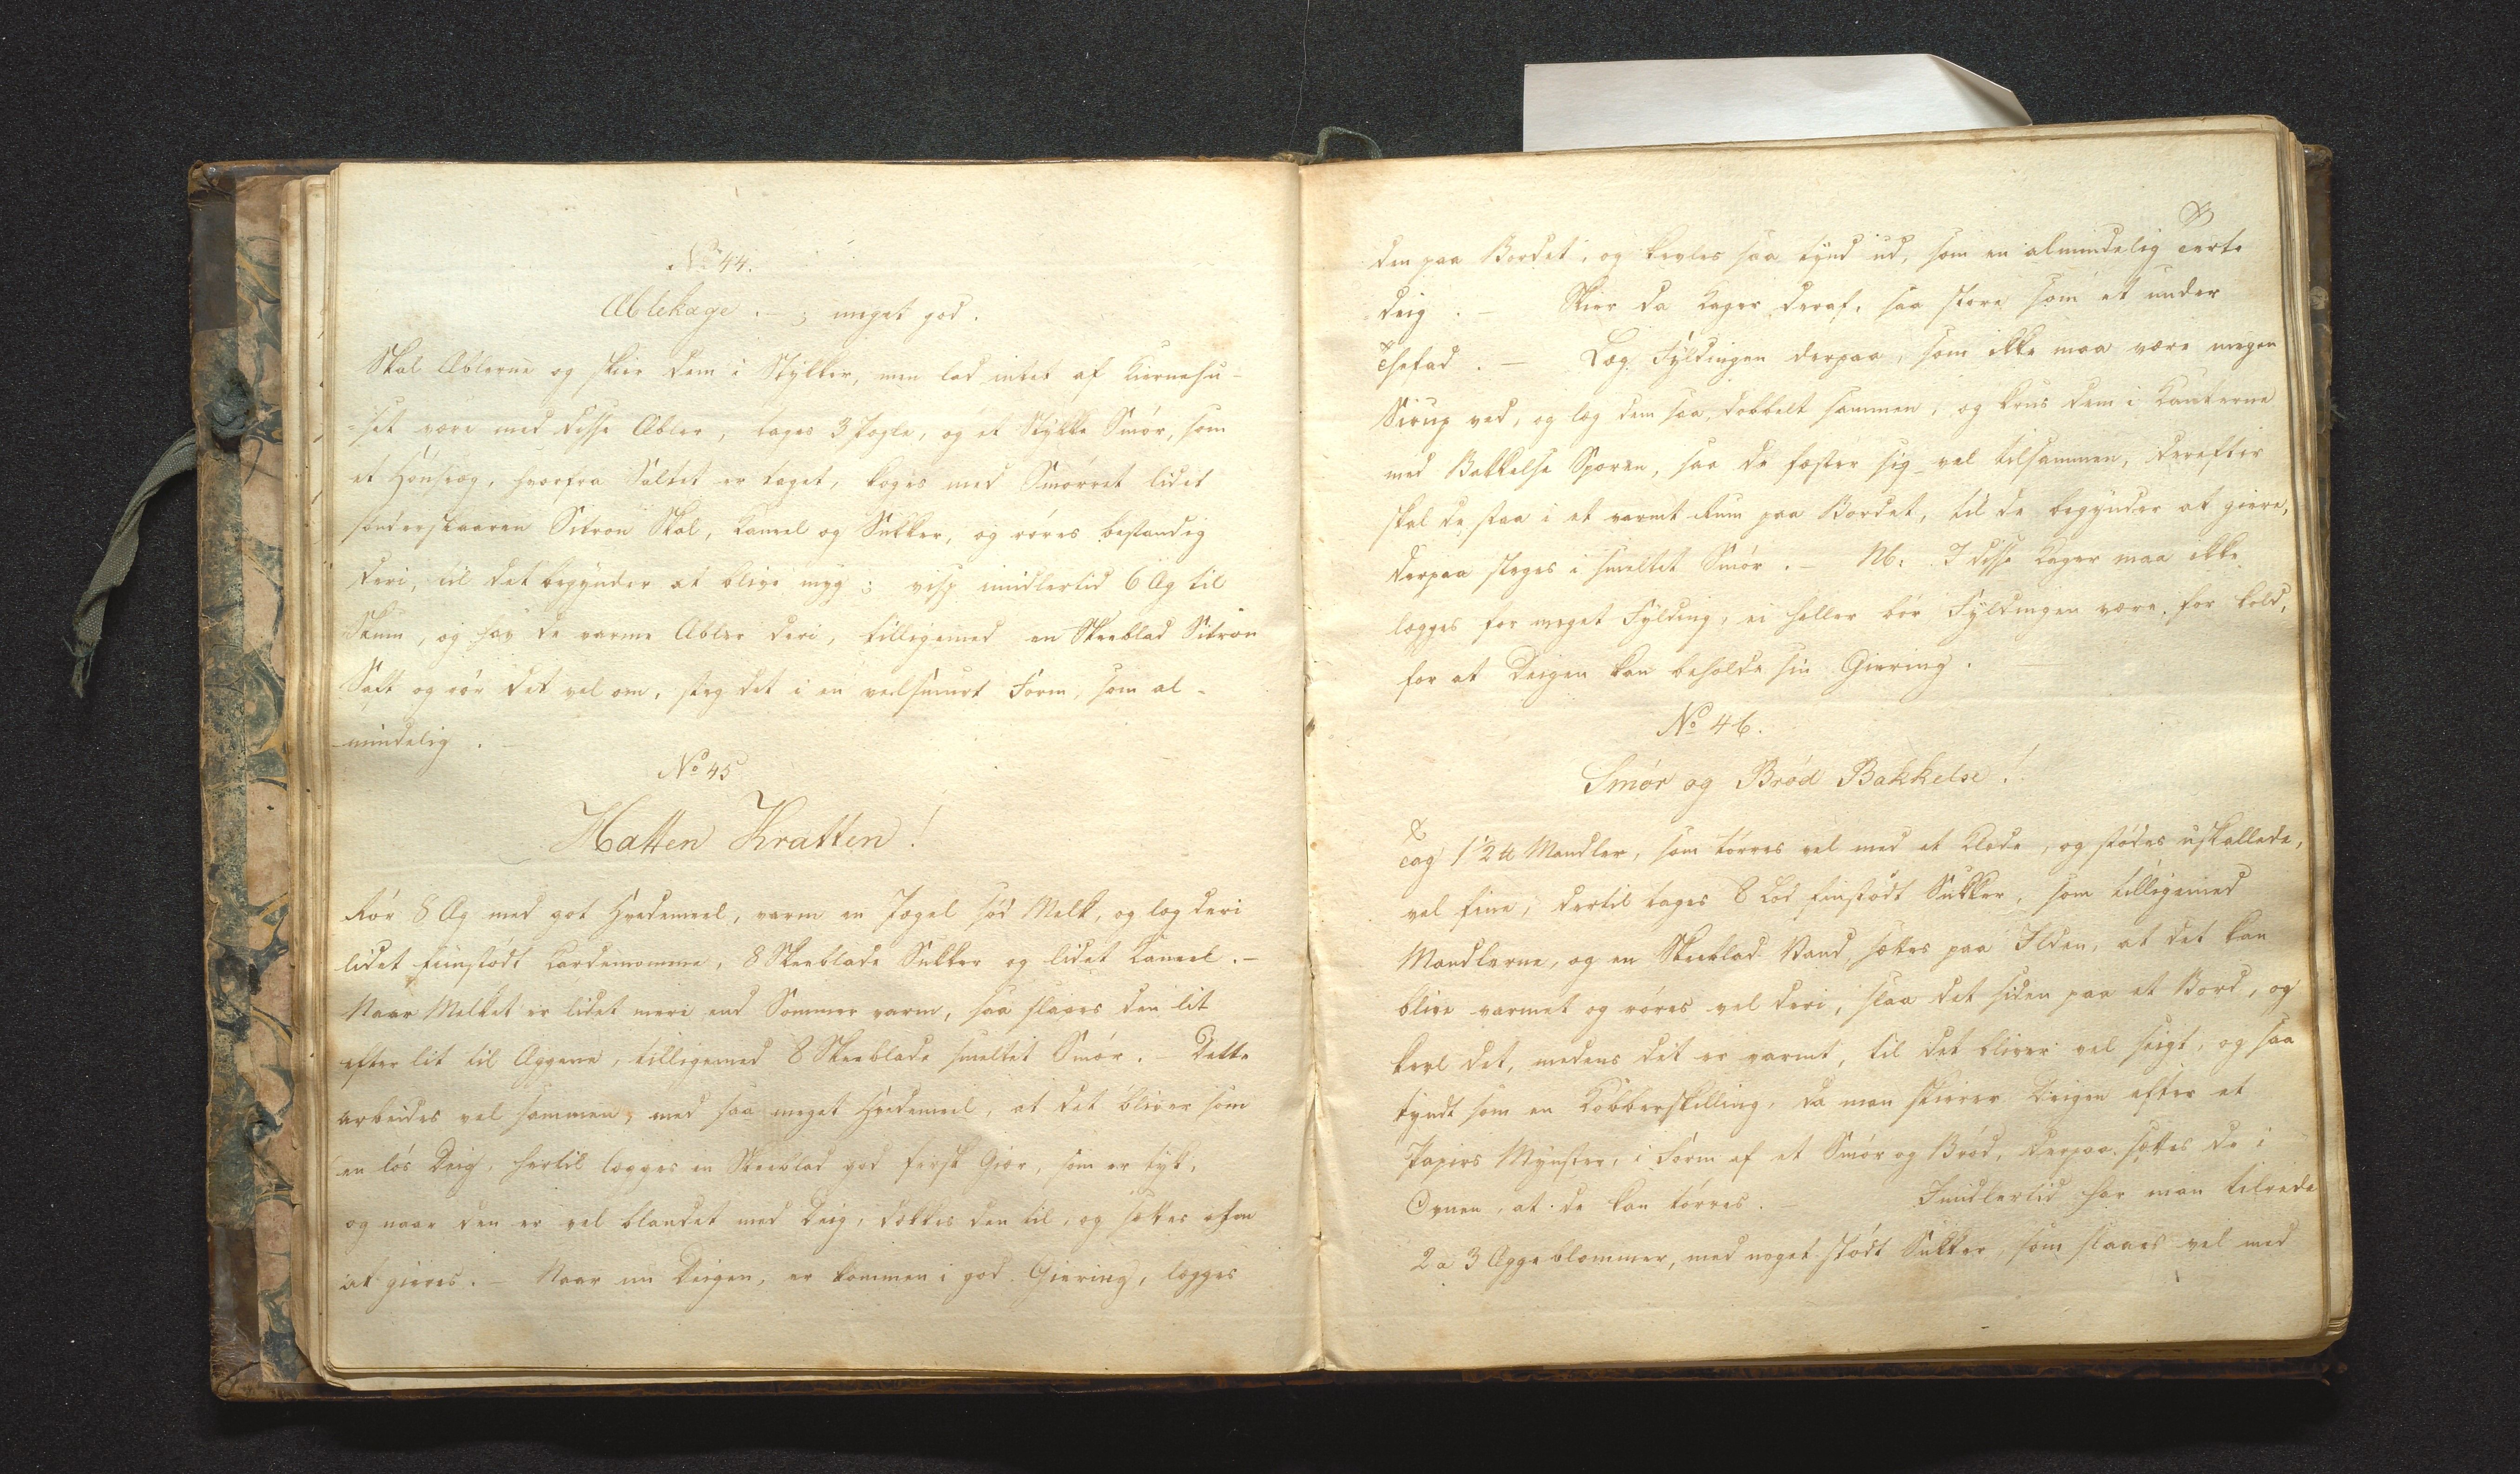 No 44.
Æblekage. - ; meget god.
Skal Æblerne og skier dem i Stykker, men lad intet af Kiernehu-
=set være med disse Æbler, tages 3 Pægle, og et Stykke Smör, som
et Hönseæg, hvorfra Saltet er taget, koges med Smörret lidet
sönderskaaren Sitron Skal, Kaneel og Sukker, og röres bestandig
deri, til det begynder at blive myg; visp imidlertid 6 Æg til
Skum, og hav de varme Æbler deri, tilligemed en Skeeblad Sitron
Saft og rör det vel om, steg det i en velsmurt Form, som al-
mindelig.
No 45
Hatten Kratten!
Rör 8 Æg med got Hvedemeel, varm en Pægel söd Melk, og læg deri
lidet fiinstödt Kardemomme, 8 Skeeblade Sukker og lidet Kaneel. -
Naar Melket er lidet mere end Sommer varm, saa slaaes den lit
efter lit til Æggene, tilligemed 8 Skeeblade smeltet Smör. - Dette
arbeides vel sammen, med saa meget Hvedemeel, at det bliver som
en lös Deig, hertil lægges en Skeeblad god fersk Giær, som er tyk,
og naar den er vel blandet med Deig, dækkes den til, og sættes hen
at gieres. - Naar nu Deigen, er kommen i god Giering, lægges
den paa Bordet, og kevles saa tynd ud, som en almindelig Terte
deig. - Skier da Kager deraf, saa store som et under
Thefad. - Læg Fyldingen derpaa, som ikke maa være megen
Sirup ved, og læg dem saa dobbelt sammen, og krus dem i Kanterne
med Bakkelse Sporen, saa de fæster sig vel tilsammen, derefter
skal de staa i et varmt Rum paa Bordet, til de begynder at giere,
derpaa steges i smeltet Smör. - NB: I disse Kager maa ikke
lægges for meget Fylding, ei heller bör Fyldingen være for kold,
for at Deigen kan beholde sin Giering.
No 46.
Smör og Bröd Bakkelse!
Tag 1/2 ℔ Mandler, som törres vel med et Klæde, og stödes uskallede,
vel fine, dertil tages 8 Lod fiinstödt Sukker, som tilligemed
Mandlerne, og en Skeeblad Vand, sættes paa Ilden, at det kan
blive varmet og röres vel deri, slaa det siden paa et Bord, og
kevl det, medens det er varmt, til det bliver vel seigt, og saa
tyndt som en Kobberskilling, da man skierer Deigen efter et
Papirs Mynster, i Form af et Smör og Bröd, derpaa sættes de i
Ovnen, at de kan törres. - Imidlertid har man tilrede
2 a 3 Æggeblommer, med noget stödt Sukker, som slaaes vel med